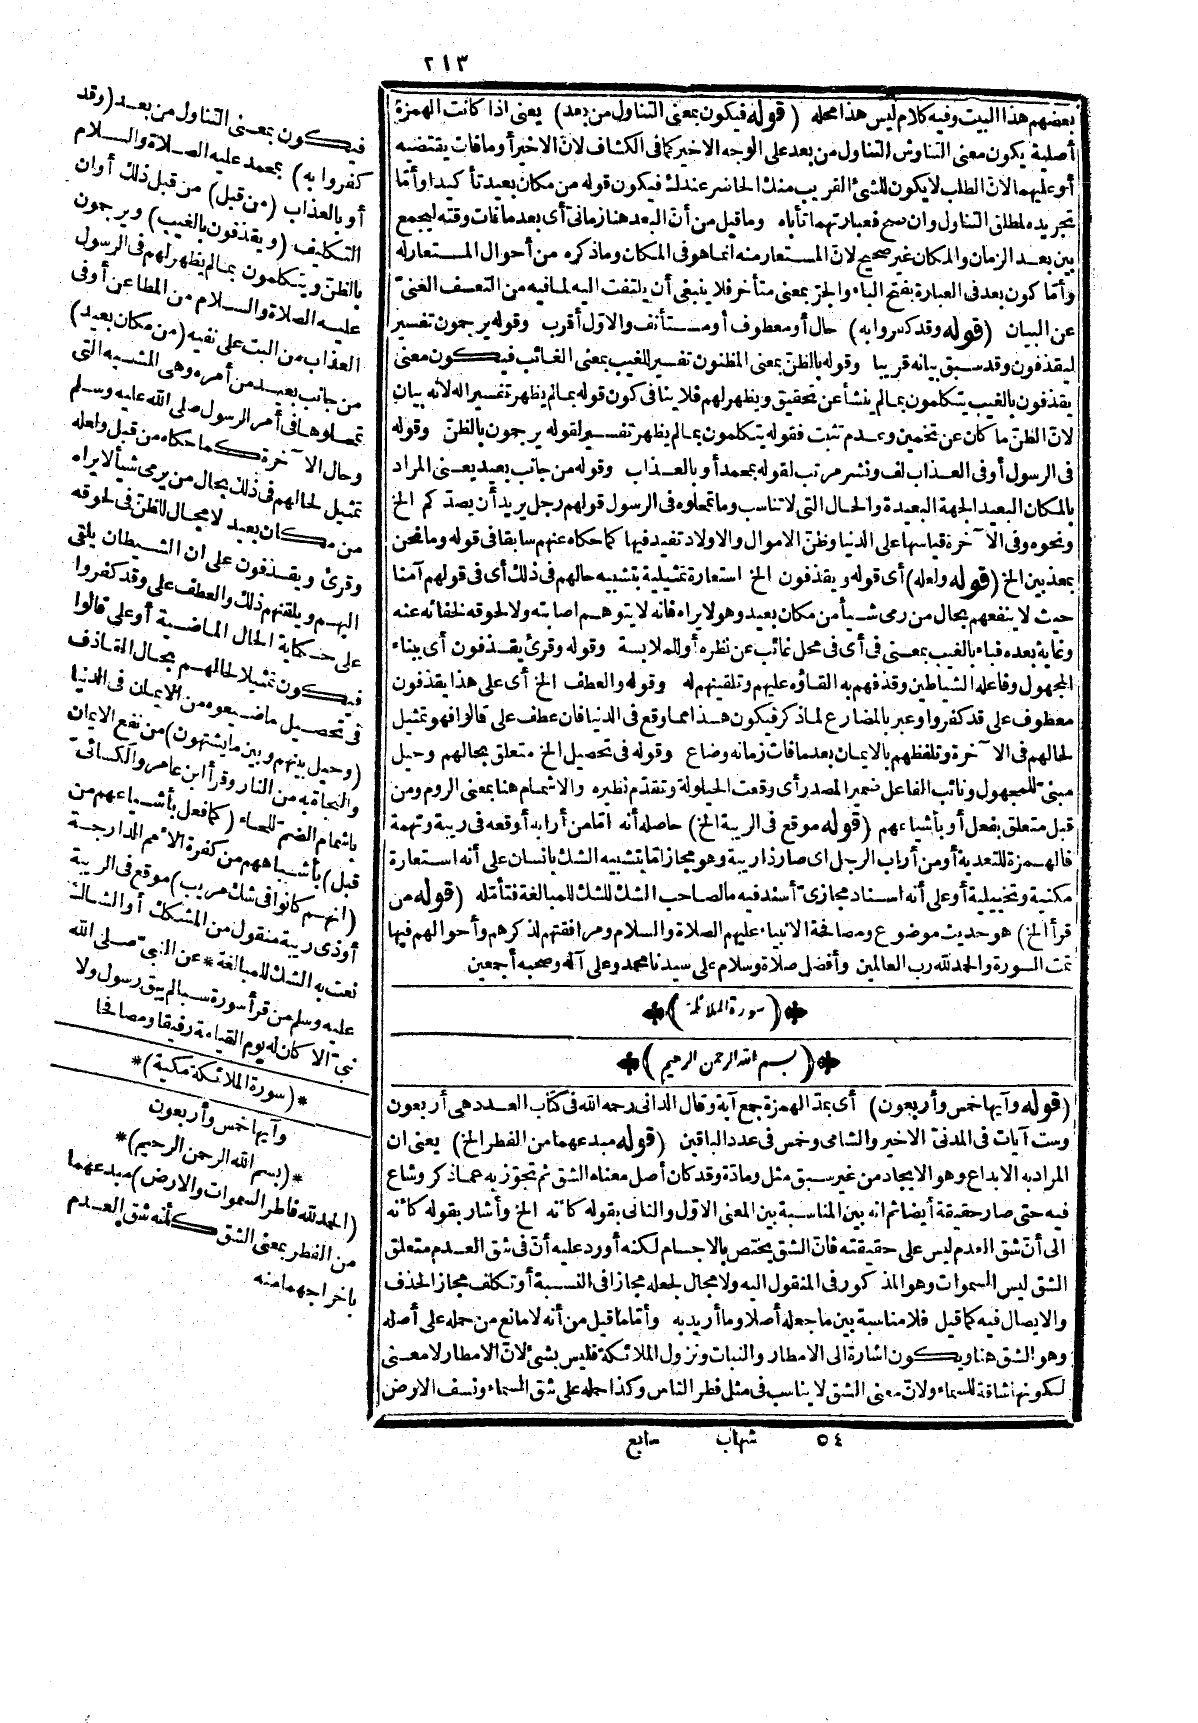 ٢١٣
بعضهم هذا البيت وفيه كلام ليس هذا محله (قوله فيكون بمعنى التناول من بعد) يعنى اذا كانت الهمزة
أصلية يكون معنى التناوش التناول من بعد على الوجه الاخير كما فى الكشاف لانّ الاخير أو ما فات يقتضيه
أو عليهما لانّ الطلب لا يكون للشئ القريب منك الحاضر عندك فيكون قوله من مكان بعيد تأكيدا وأمّا
تجريده لمطلق التناول وان صح فعبارتهما تأباه وما قيل من أنّ البعد هنا زمانى أى بعد ما فات وقته ليجمع
بين بعد الزمان والمكان غير صحيح لانّ المستعار منه انما هو فى المكان وما ذكره من أحوال المستعار له
وأمّا كون بعد فى العبارة بفتح الباء والجرّ بمعنى متأخر فلا ينبغى أن يلتفت اليه لما فيه من التعسف الغنىّ
عن البيان (قوله وقد كفروا به) حال أو معطوف أو مستأنف والاوّل أقرب وقوله يرجمون تفسير
ليقذفون وقد سبق بيانه قريبا وقوله بالظنّ بمعنى المظنون تفسير للغيب بمعنى الغائب فيكون معنى
يقذفون بالغيب يتكلمون بما لم ينشأ عن تحقيق ويظهر لهم فلا ينافى كون قوله بما لم يظهر تفسيرا له لانه بيان
لانّ الظنّ ما كان عن تخمين وعدم تثبت فقوله يتكلمون بما لم يظهر تفسير لقوله يرجمون بالظنّ وقوله
فى الرسول أو فى العذاب لف ونشر مرتب لقوله بمحمد أو بالعذاب وقوله من جانب بعيد يعنى المراد
بالمكان البعيد الجهة البعيدة والحال التى لا تناسب وما تمحلوه فى الرسول قولهم رجل يريد أن يصدّكم الخ
ونحوه وفى الآخرة قياسها على الدنيا وظنّ الاموال والاولاد تفيد فيها كما حكاه عنهم سابقا فى قوله وما نحن
بمعذبين الخ (قوله ولعله) أى قوله ويقذفون الخ استعارة تمثيلية بتشبيه حالهم فى ذلك أى فى قولهم آمنا
حيث لا ينفعهم بحال من رمى شيأ من مكان بعيد وهو لا يراه فانه لا يتوهم اصابته ولا لحوقه لخفائه عنه
وغاية بعده فباء بالغيب بمعنى فى أى فى محل غائب عن نظره أو للملابسة وقوله وقرئ يقذفون أى بيناء
المجهول وفاعله الشياطين وقذفهم به القاؤه عليهم وتلقينهم له وقوله والعطف الخ أى على هذا يقذفون
معطوف على قد كفروا وعبر بالمضارع لما ذكر فيكون هذا مما وقع فى الدنيا فان عطف على قالوا فهو تمثيل
لحالهم فى الآخرة وتلفظهم بالايمان بعد ما فات زمانه وضاع وقوله فى تحصيل الخ متعلق بحالهم وحيل
مبنىّ للمجهول ونائب الفاعل ضمير المصدر أى وقعت الحيلولة وتقدّم نظيره والاشمام هنا بمعنى الروم ومن
قبل متعلق بفعل أو بأشياعهم (قوله موقع فى الريبة الخ) حاصله أنه امّا من أرابه أوقعه فى ريبة وتهمة
فالهمزة للتعدية أو من أراب الرجل اى صار ذا ريبة وهو مجاز امّا بتشبيه الشك بانسان على أنه استعارة
مكنية وتخييلية أو على أنه اسناد مجازىّ أسند فيه ما لصاحب الشك للشك للمبالغة فتأمّله (قوله من
قرأ الخ) هو حديث موضوع ومصافحة الانبياء عليهم الصلاة والسلام ومرافقتهم لذكرهم وأحوالهم فيها
تمت السورة والحمد لله رب العالمين وأفضل صلاة وسلام على سيدنا محمد وعلى آله وصحبه أجمعين
(سورة الملائكة)
(بسم الله الرحمن الرحيم)
(قوله وآيها خمس وأربعون) أى بمدّ الهمزة جمع آية وقال الدانى رحمه الله فى كتاب العدد هى أربعون
وست آيات فى المدنىّ الاخير والشامى وخمس فى عدد الباقين (قوله مبدعهما من الفطر الخ) يعنى ان
المراد به الابداع وهو الايجاد من غير سبق مثل ومادّة وقد كان أصل معناه الشق ثم تجوّز به عما ذكر وشاع
فيه حتى صار حقيقة أيضا ثم انه بين المناسبة بين المعنى الاوّل والثانى بقوله كأنه الخ وأشار بقوله كأنه
الى أنّ شق العدم ليس على حقيقته فانّ الشق يختص بالاجسام لكنه أورد عليه أنّ فى شق العدم متعلق
الشق ليس السموات وهو المذكور فى المنقول اليه ولا مجال لجعله مجازا فى النسبة أو تكلف مجاز الحذف
والايصال فيه كما قيل فلا مناسبة بين ما جعله أصلا وما أريد به وأمّا ما قيل من أنه لا مانع من حمله على أصله
وهو الشق هنا ويكون اشارة الى الامطار والنبات ونزول الملائكة فليس بشئ لانّ الامطار لا معنى
لكونها شاقة للسماء ولانّ معنى الشق لا يناسب فى مثل فطر الناس وكذا حمله على شق السماء ونسف الارض
٥٤ شهاب سابع
فيكون بمعنى التناول من بعد (وقد
كفروا به) بمحمد عليه الصلاة والسلام
أو بالعذاب (من قبل) من قبل ذلك أوان
التكليف (ويقذفون بالغيب) ويرجمون
بالظنّ ويتكلمون بما لم يظهر لهم فى الرسول
عليه الصلاة والسلام من المطاعن أو فى
العذاب من البت على نفيه (من مكان بعيد)
من جانب بعيد من أمره وهى الشبه التى
تمحلوها فى أمر الرسول صلى الله عليه وسلم
وحال الآخرة كما حكاه من قبل ولعله
تمثيل لحالهم فى ذلك بحال من يرمى شيأ لا يراه
من مكان بعيد لا مجال للظنّ فى لحوقه
وقرئ ويقذفون على ان الشيطان يلقى
اليهم ويلقنهم ذلك والعطف على وقد كفروا
على حكاية الحال الماضية أو على قالوا
فيكون تمثيلا لحالهم بحال القاذف
فى تحصيل ما ضيعوه من الايمان فى الدنيا
(وحيل بينهم وبين ما يشتهون) من نفع الايمان
والنجاة به من النار وقرأ ابن عامر والكسائىّ
باشمام الضم للحاء (كما فعل بأشياعهم من
قبل) بأشباههم من كفرة الامم الدارجة
(انهم كانوا فى شك مريب) موقع فى الريبة
أو ذى ريبة منقول من المشكك أو الشاك
نعت به الشك للمبالغة * عن النبىّ صلى الله
عليه وسلم من قرأ سورة سبا لم يبق رسول ولا
نبىّ الا كان له يوم القيامة رفيقا ومصافحا
* (سورة الملائكة مكية) *
وآيها خمس وأربعون
* (بسم الله الرحمن الرحيم) *
(الحمد لله فاطر السموات والارض) مبدعهما
من الفطر بمعنى الشق كأنه شق العدم
باخراجهما منه